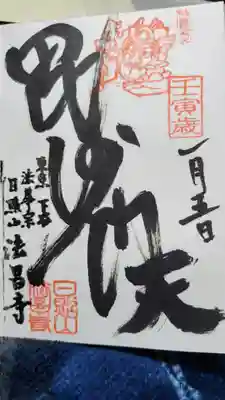 壬寅歳
一月五日
毘沙門天
東京 下谷
法華宗
日照山 法昌寺